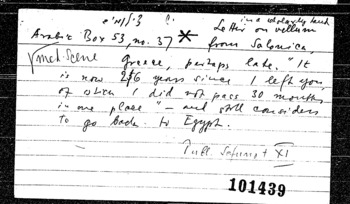 Arabic Box 53, no. 37
in a scholarly hand
Letter on vellum
from Salonica,
Greece, perhaps late. "It
is now 2½ years since I left you,
of which I did not pass 30 months
in one place" – and still considers
to go back to Egypt.
XI
101439